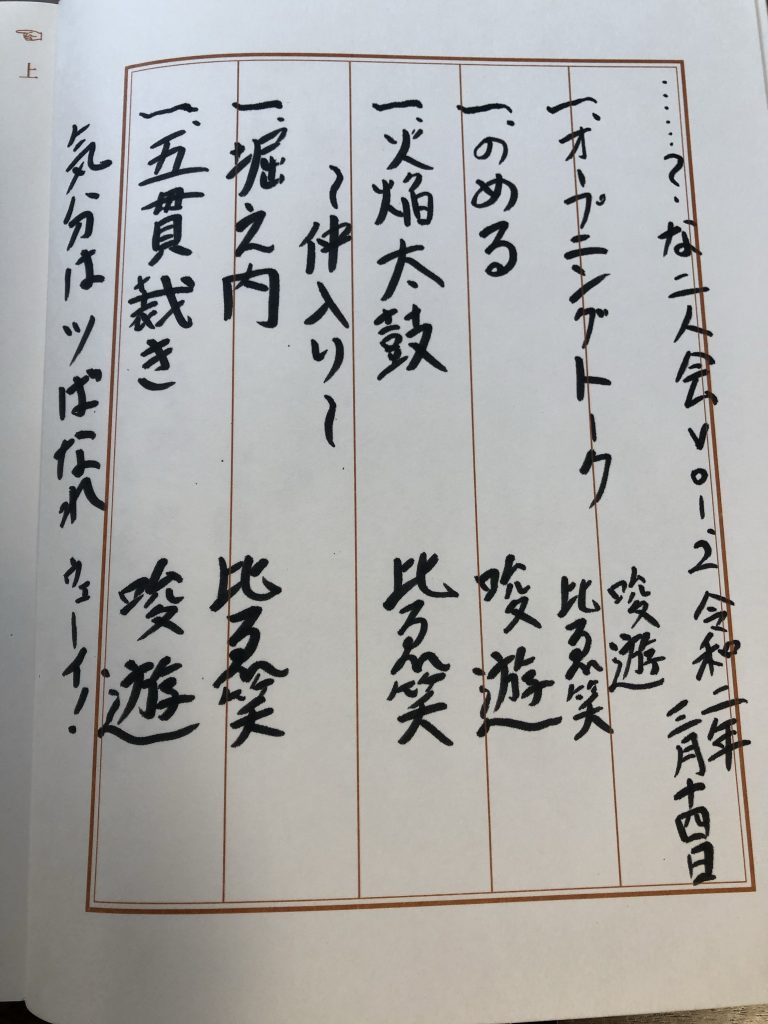 ………?.な二人会vol.2 令和二年
三月十四日
一、オープニングトーク 唆遊
比ゑ笑
一、のめる 唆遊
一、火焔太鼓 比ゑ笑
~仲入り~
一、堀之内 比ゑ笑
一、五貫裁き 唆遊
気分はツばなれ ウェーイ!
上